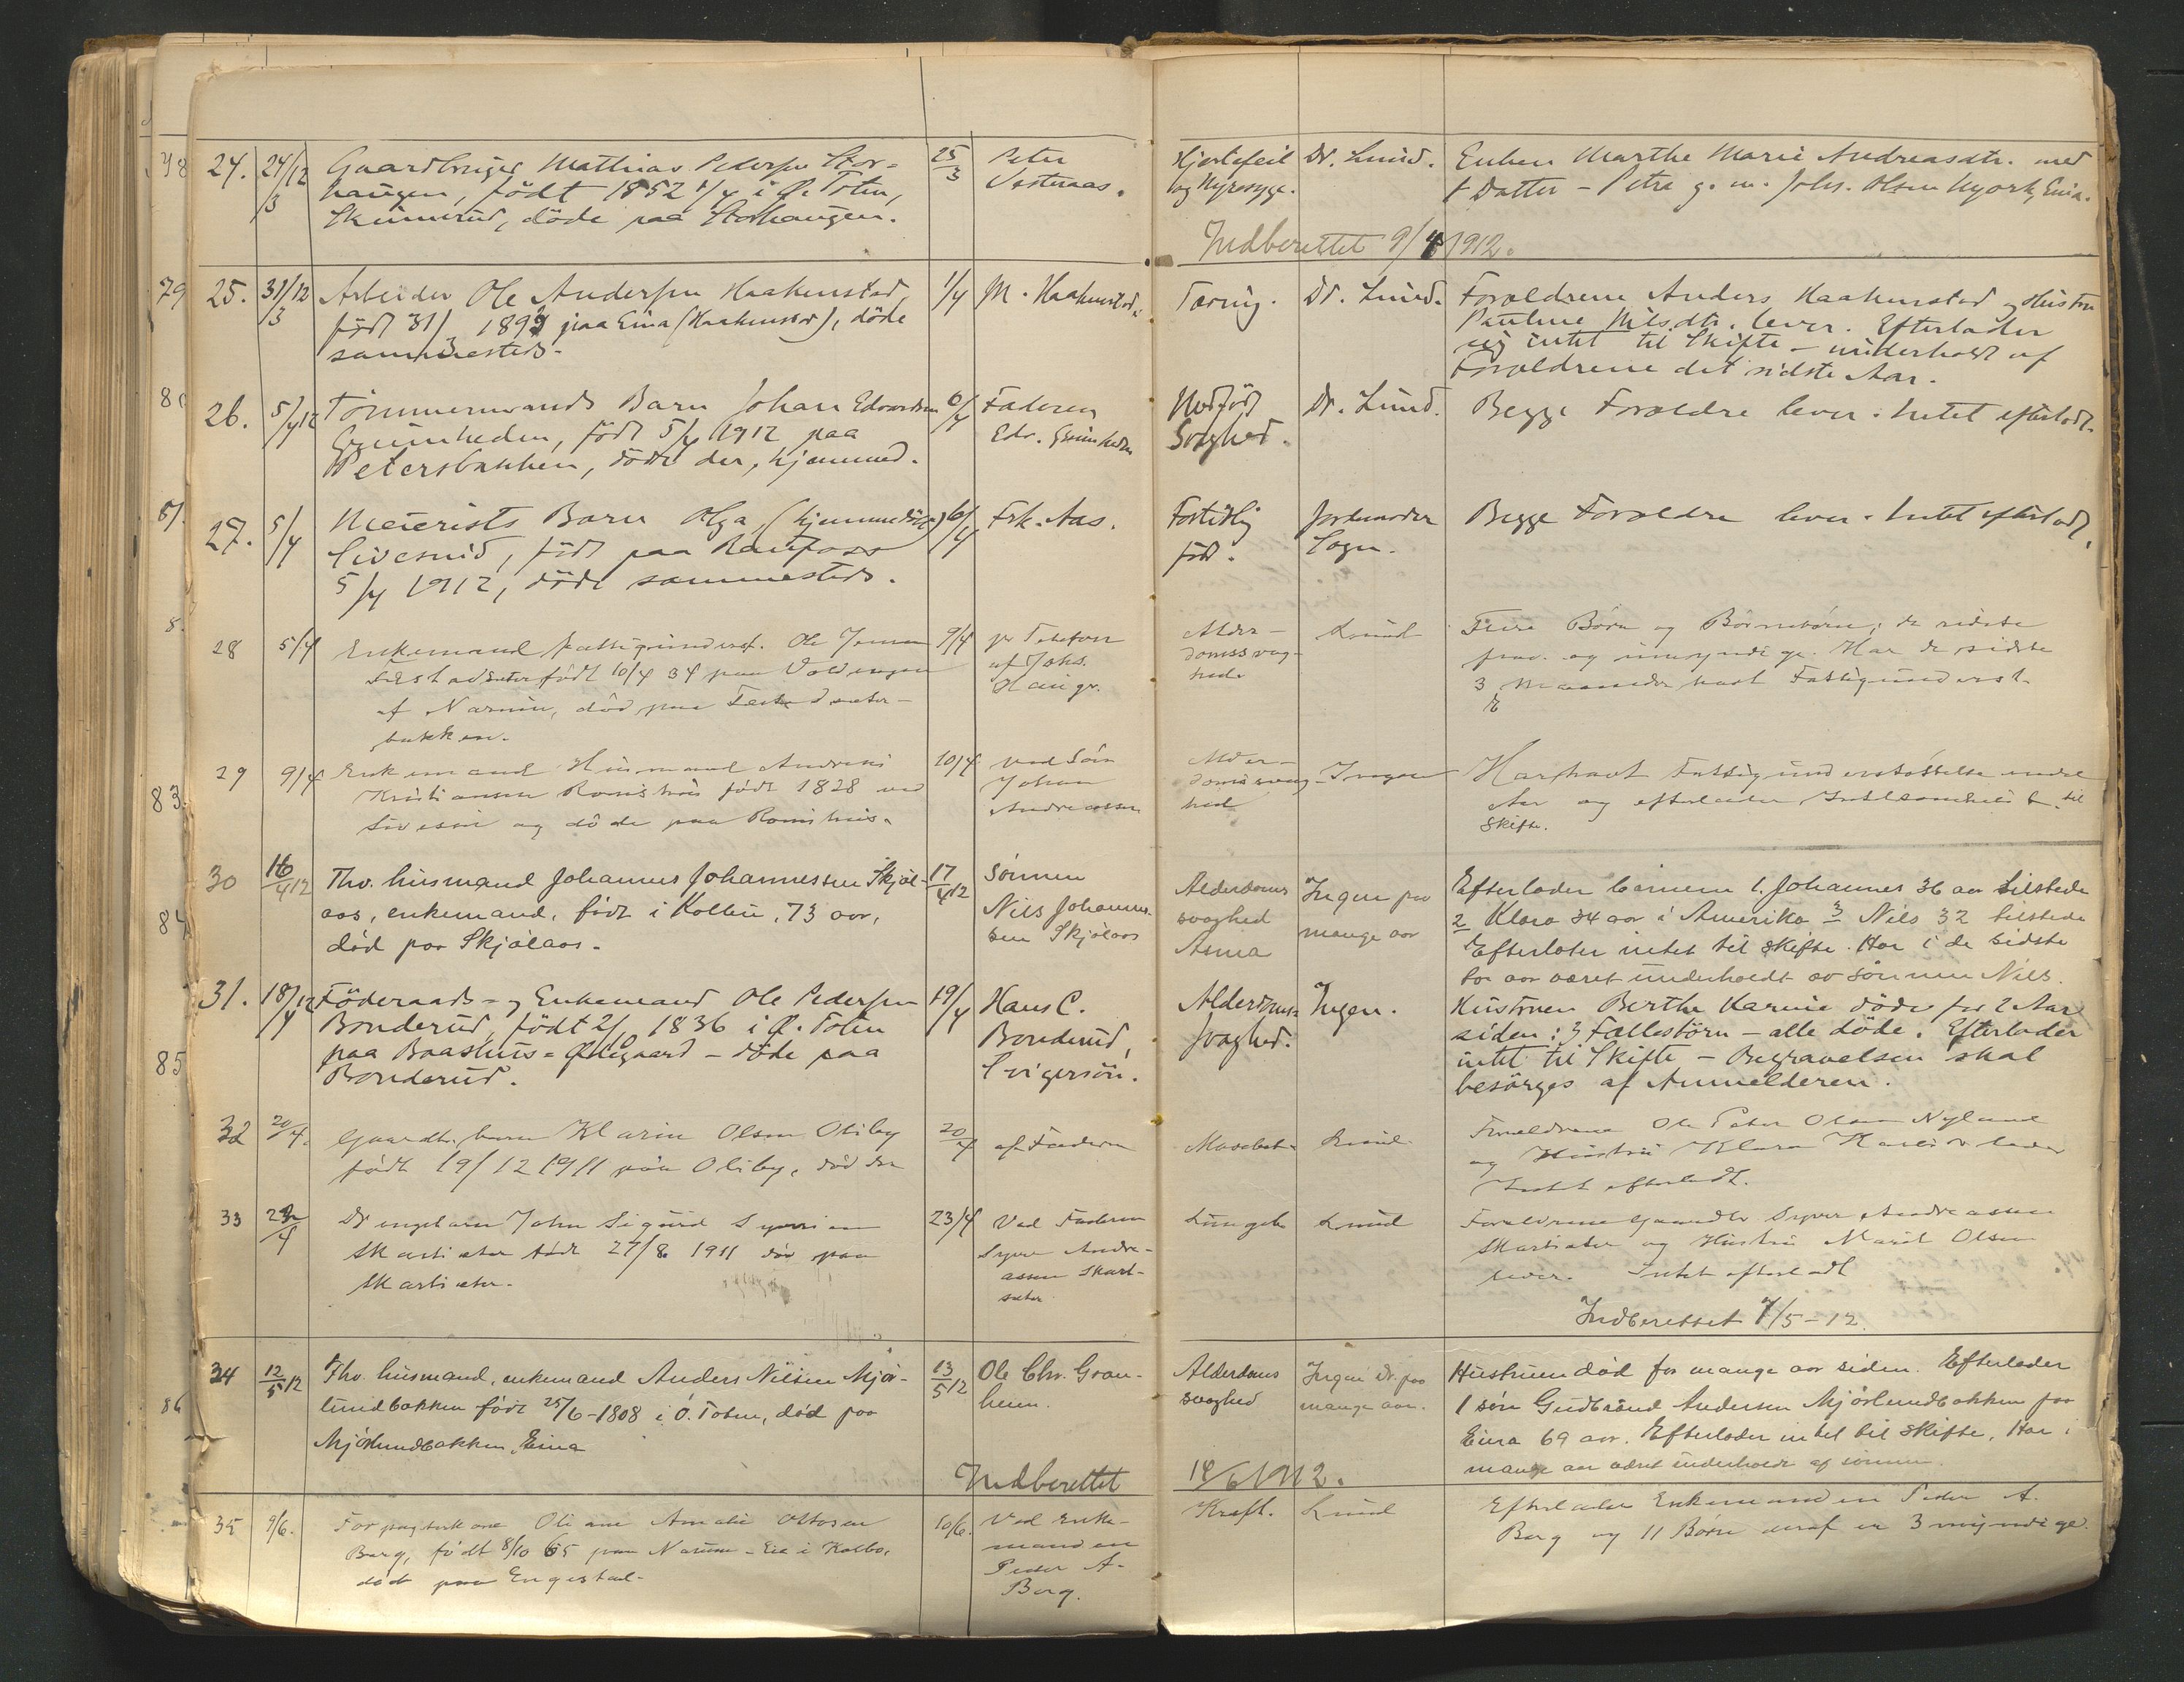 24. 24/3 12 Gaardbruger Mathias Pedersen Stor= 25/3 Peter Hjertefeil Dr. Lund. Enken Marthe Marie Andreasdtr. med
haugen, født 1852 1/4 i Ø. Toten, Vesteraas. og Nyresyge. 1 Datter – Petra g. m. Johs. Olsen Myork, Eina.
Skunnrud, døde paa Storhaugen.
Indberettet 9/4 1912.
25. 31/3 12 Arbeider Ole Andersen Haakenstad, 1/4 M. Haakenstad. Tæring. Dr. Lund. Forældrene Anders Haakenstad og Hustru
født 31/3 1893 paa Eina (Haakenstad), døde Pauline Nilsdtr. lever. Efterlader
sammesteds. sig intet til Skifte – underholdt af
Forældrene det sidste Aar.
26. 5/4 12 Tømmermands Barn Johan Edvardsen 6/4 Faderen Medfødt Dr. Lund. Begge Forældre lever. Intet efterladt.
Grünheden, født 5/4 1912 paa Edv. Grünheden Svaghed.
Petersbakken, døde der, hjemmed.
27. 5/4 Meierists Barn Olga (hjemmedøbt) 6/4 Frk. Aas. Fortidlig Jordmoder Begge Forældre lever. Intet efterladt.
Sivesind, født paa Raufoss født. Sogn.
5/4 1912, døde sammesteds.
28 5/4 Enkemand fattigunderst. Ole Jensen 9/4 pr Telefon Alder- Lund Flere Børn og Børnebørn; de sidste
født 10/4 34 paa af Johs. domssvag- frav. og umyndige. Har de sidste
af Narum, død paa Haugr. hed. 3 Maaneder havt Fattigunderst.
bakken.
29 9/4 Enkemand Husmand Andreas 10/4 ved Søn Alder- Ingen Har havt Fattigunderstøttelse endel
Kristiansen Romshus født 1828 ved Johan domssvag- Aar og efterlader Intet til
Sivesin og døde paa Romshus. Andreassen hed Skifte.
30 16/4 12 Fhv. husmand Johannes Johannessen Skjøl- 17/4 12 Sønnen Alderdoms Ingen paa Efterlader børnene 1. Johannes 36 aar tilstede
aas, enkemand, født i Kolbu, 73 aar, Nils Johannes- svaghed mange aar 2 Klara 34 aar i Amerika 3 Nils 32 tilstede
død paa Skjølaas. sen Skjølaas Asma Efterlater intet til skifte. Har i de sidste
to aar været underholdt av sønnen Nils.
31. 18/4 12 Föderaads- og Enkemand Ole Pedersen 19/4 Hans C. Alderdoms= Ingen. Hustruen Berthe Karine døde for 2 Aar
Bonderud, født 2/1 1836 i Ø. Toten Bonderud, svaghed. siden: 3 Fællesbørn – alle døde. Efterlader
paa Baashus=Ødegaard – døde paa Svigersøn. intet til Skifte – Begravelsen skal
Bonderud. besørges af Anmelderen.
32 20/4. Gaardbr. barn Klarin Olsen Oliby 20/4 af Faderen Lund. Forældrene Ole Peter Olsen Nyland
født 19/12 1911 paa Oliby, død der og Hustru Klara lever
Intet efterladt.
33 22/4 Drengebarn John Sigurd Syversen 23/4 Ved Faderen Lungebe Lund Forældrene Gaardbr Syver Andreassen
Skartsæter født 27/8. 1911 død paa Syver Andre- Skartsæter og Hustru Marit Olsen
Skartsæter. assen Skart- lever. Intet efterladt
sæter.
Indberettet 7/5 – 12.
34 12/5 12 Fhv. husmand, enkemand Anders Nilsen Mjør- 13/5 12 Ole Chr. Gran- Alderdoms Ingen Dr. paa Hustruen død for mange aar siden. Efterlader
lundbakken født 25/6 - 1808 i Ø. Toten, død paa heim. svaghed mange aar. 1 søn Gudbrand Andersen Mjørlundbakken paa
Mjørlundbakken, Eina Eina 69 aar. Efterlader intet til skifte. Har i
mange aar været underholdt af sønnen.
Indberettet 14/6 1912.
35 9/6. Forpagterkone Oliane Amalie Ottosen 10/6. Ved Enke- Kræft. Lund Efterlader Enkemanden Peder A.
Berg, født 8/10 65 paa Narum-Eie i Kolbo, manden Berg og 11 Børn deraf er 3 myndige.
død paa Engestad. Peder A.
Berg.
79
83.
84
85
86